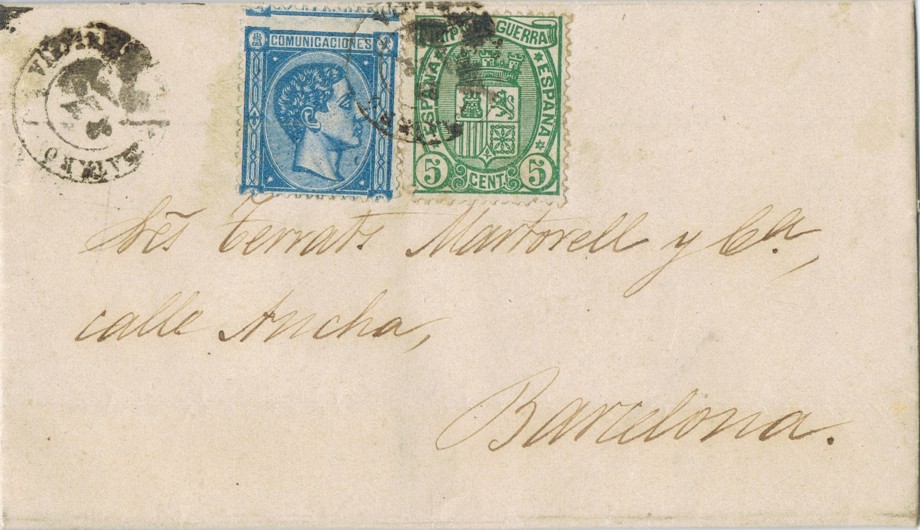 COMUNICACIONES
GUERRA
ESPAÑA
ESPAÑA
5 CENT. 5
Srēs Terrats Martorell y Cª,
calle Ancha,
Barcelona.